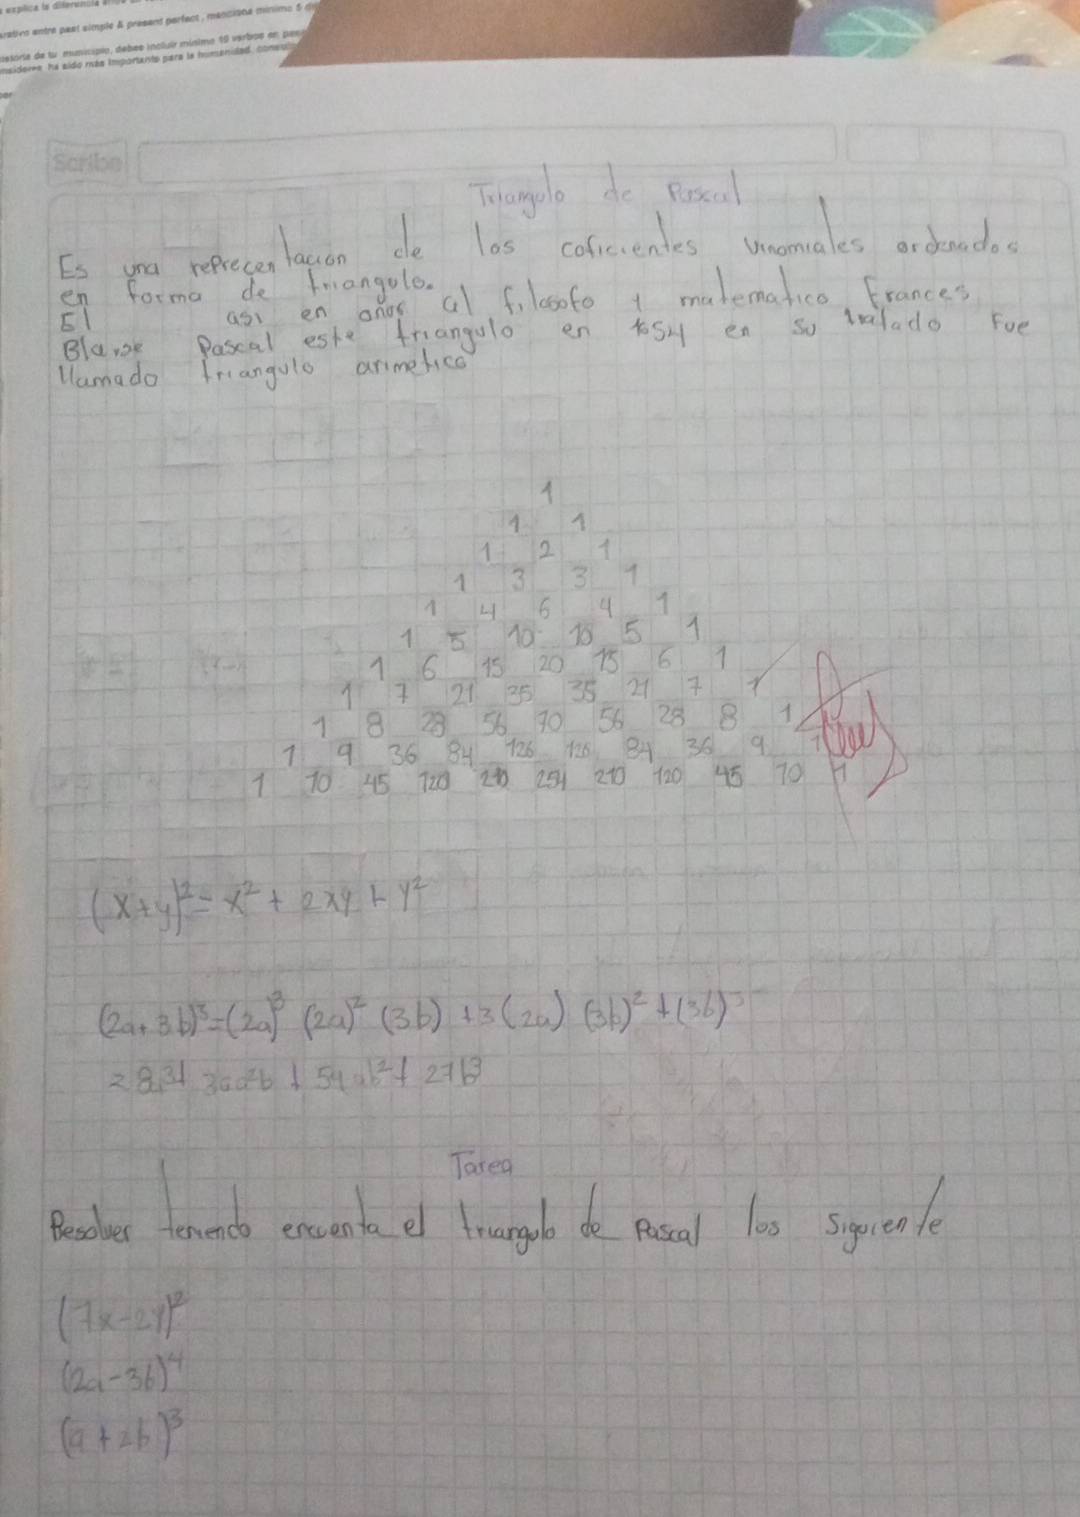 explica la diferencia
entre past simple & present perfect, menciona mínimo 5
de tu municipio, debes incluir mínimo 10 verbos en
ha sido más importante para la humanidad,
Scribe
Triangulo de Pascal
Es una reprecentacion de los coficientes vinomiales ordenados
en forma de triangulo.
El asi en onor al filosofo y matematico Frances
Blaise Pascal este triangulo en 1654 en su tratado Fue
llamado triangulo arimetico
1
1 1
1 2 1
1 3 3 1
1 4 6 4 1
1 5 10 10 5 1
1 6 15 20 15 6 1
1 7 21 35 35 21 7 1
1 8 28 56 70 56 28 8 1
1 9 36 84 126 126 84 36 9 1
1 10 45 120 210 254 210 120 45 10 1
(x+y)²=x²+2xy+y²
(2a+3b)³=(2a)³ (2a)² (3b) +3(2a) (3b)² +(3b)³
=8a³+ 36a²b + 54ab²+ 27b³
Tarea
Resolver teniendo encuenta el triangulo de Pascal los siguiente
(7x-2y)²
(2a-3b)⁴
(a+2b)³